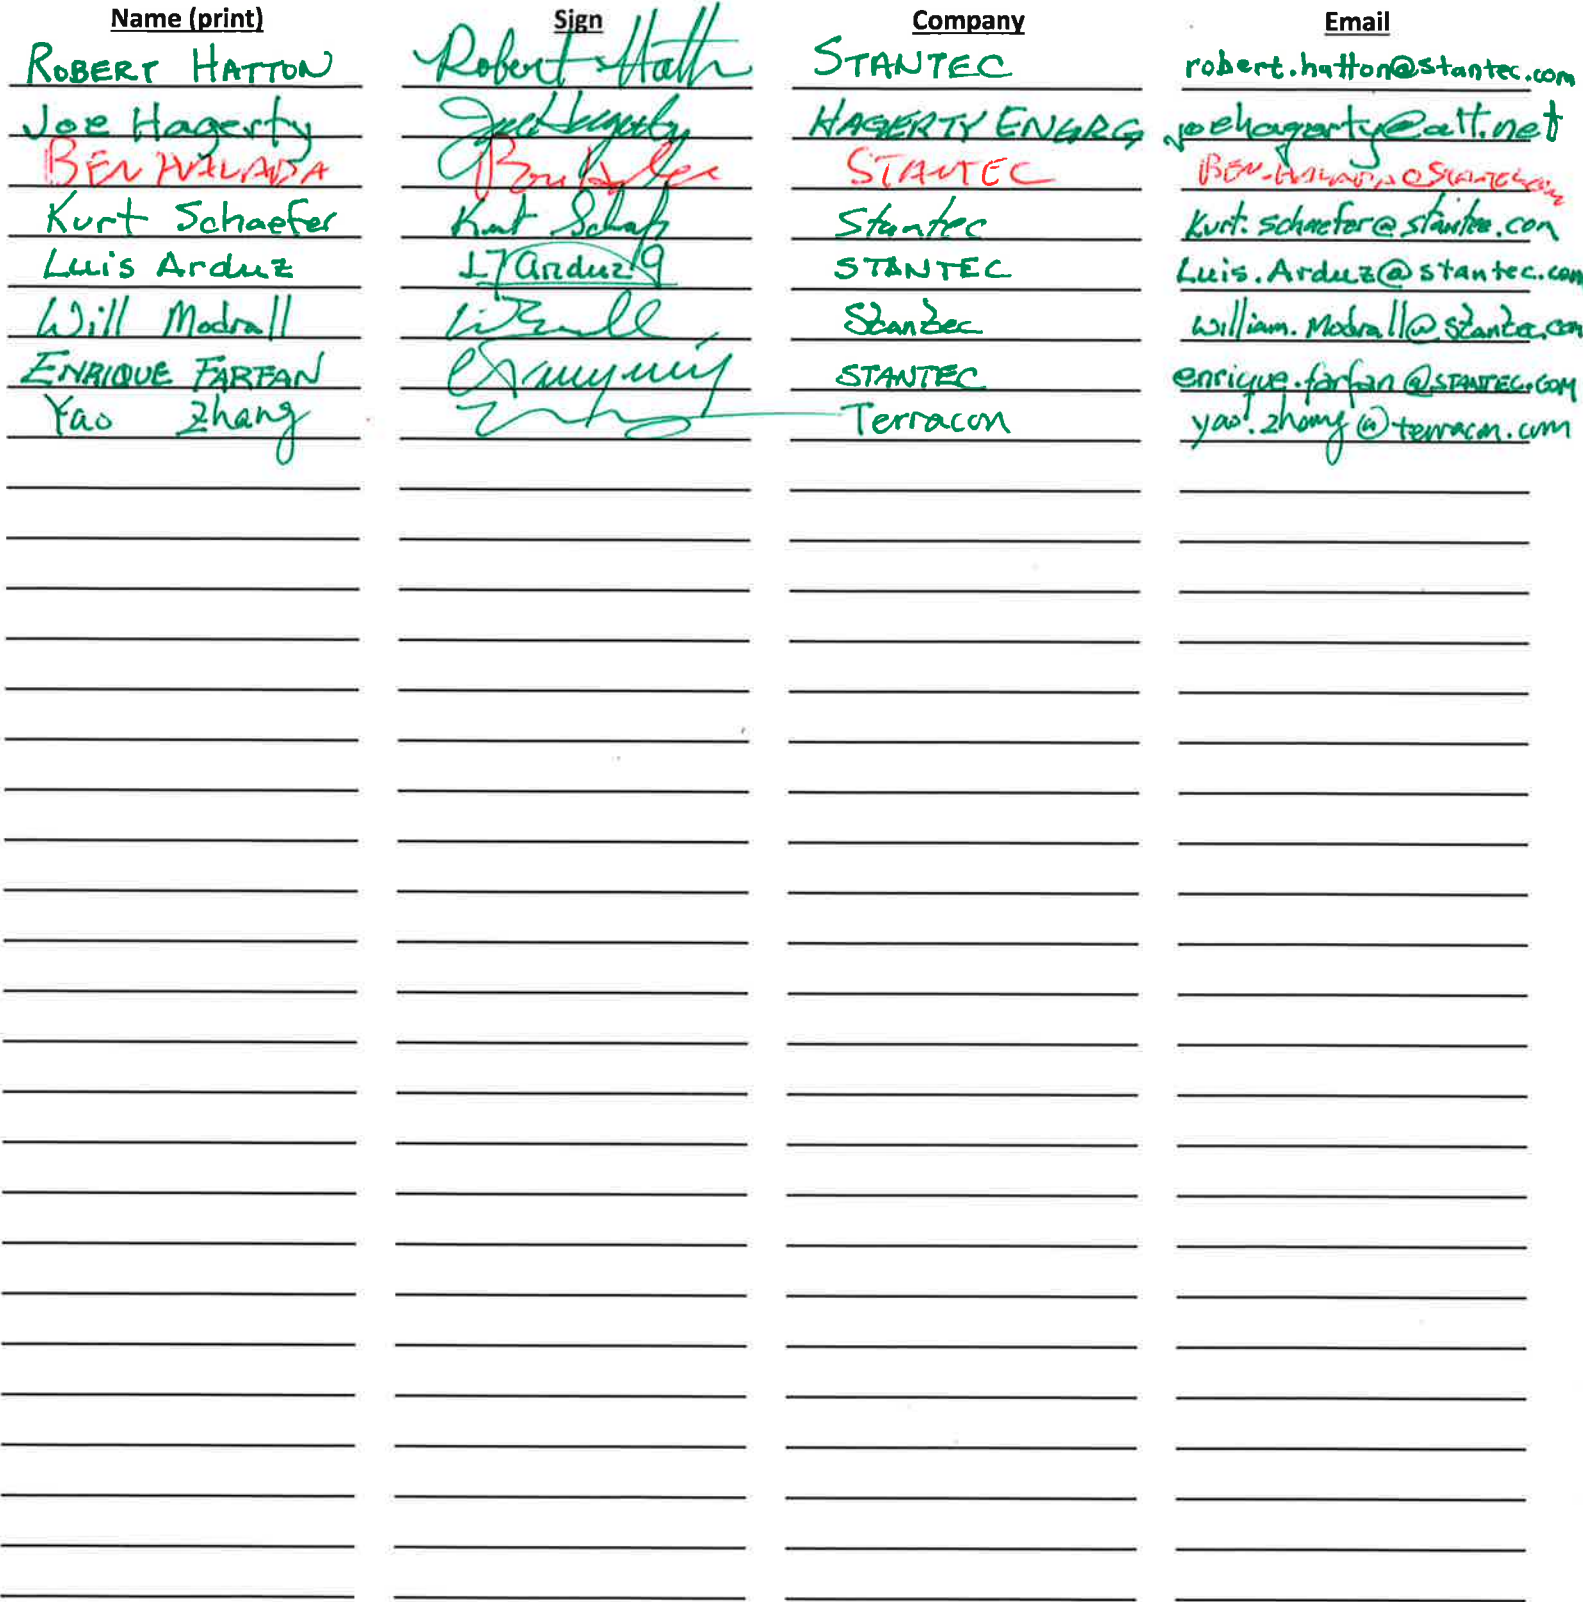 Name (print) Sign Company Email
ROBERT HATTON Robert Hatton STANTEC robert.hatton@stantec.com
Joe Hagerty Joe Hagerty HAGERTY ENGRG joehagerty@att.net
BEN STANTEC
Kurt Schaefer Kurt Schaefer Stantec Kurt.schaefer@stantec.com
Luis Arduz 17 Arduz 19 STANTEC Luis.Arduz@stantec.com
Will Modrall Stantec william.Modrall@stantec.com
ENRIQUE FARFAN STANTEC enrique.farfan@STANTEC.COM
Yao Zhang Terracon yao.zhang@terracon.com